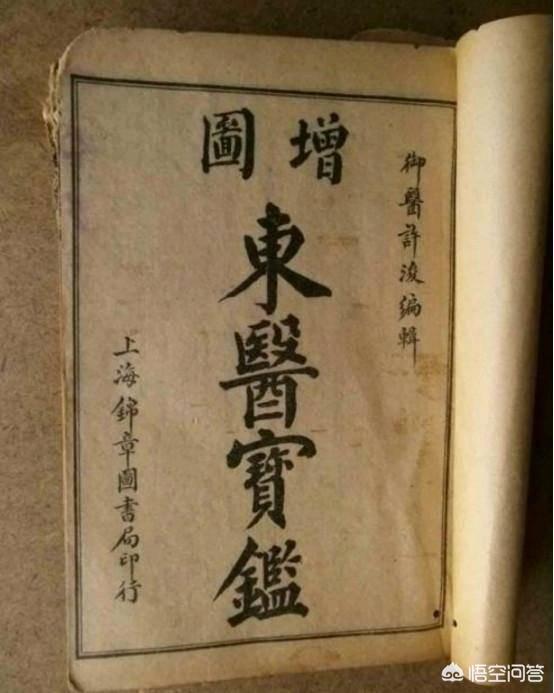 增圖
御醫許浚編輯
東醫寶鑑
上海錦章圖書局印行
悟空问答